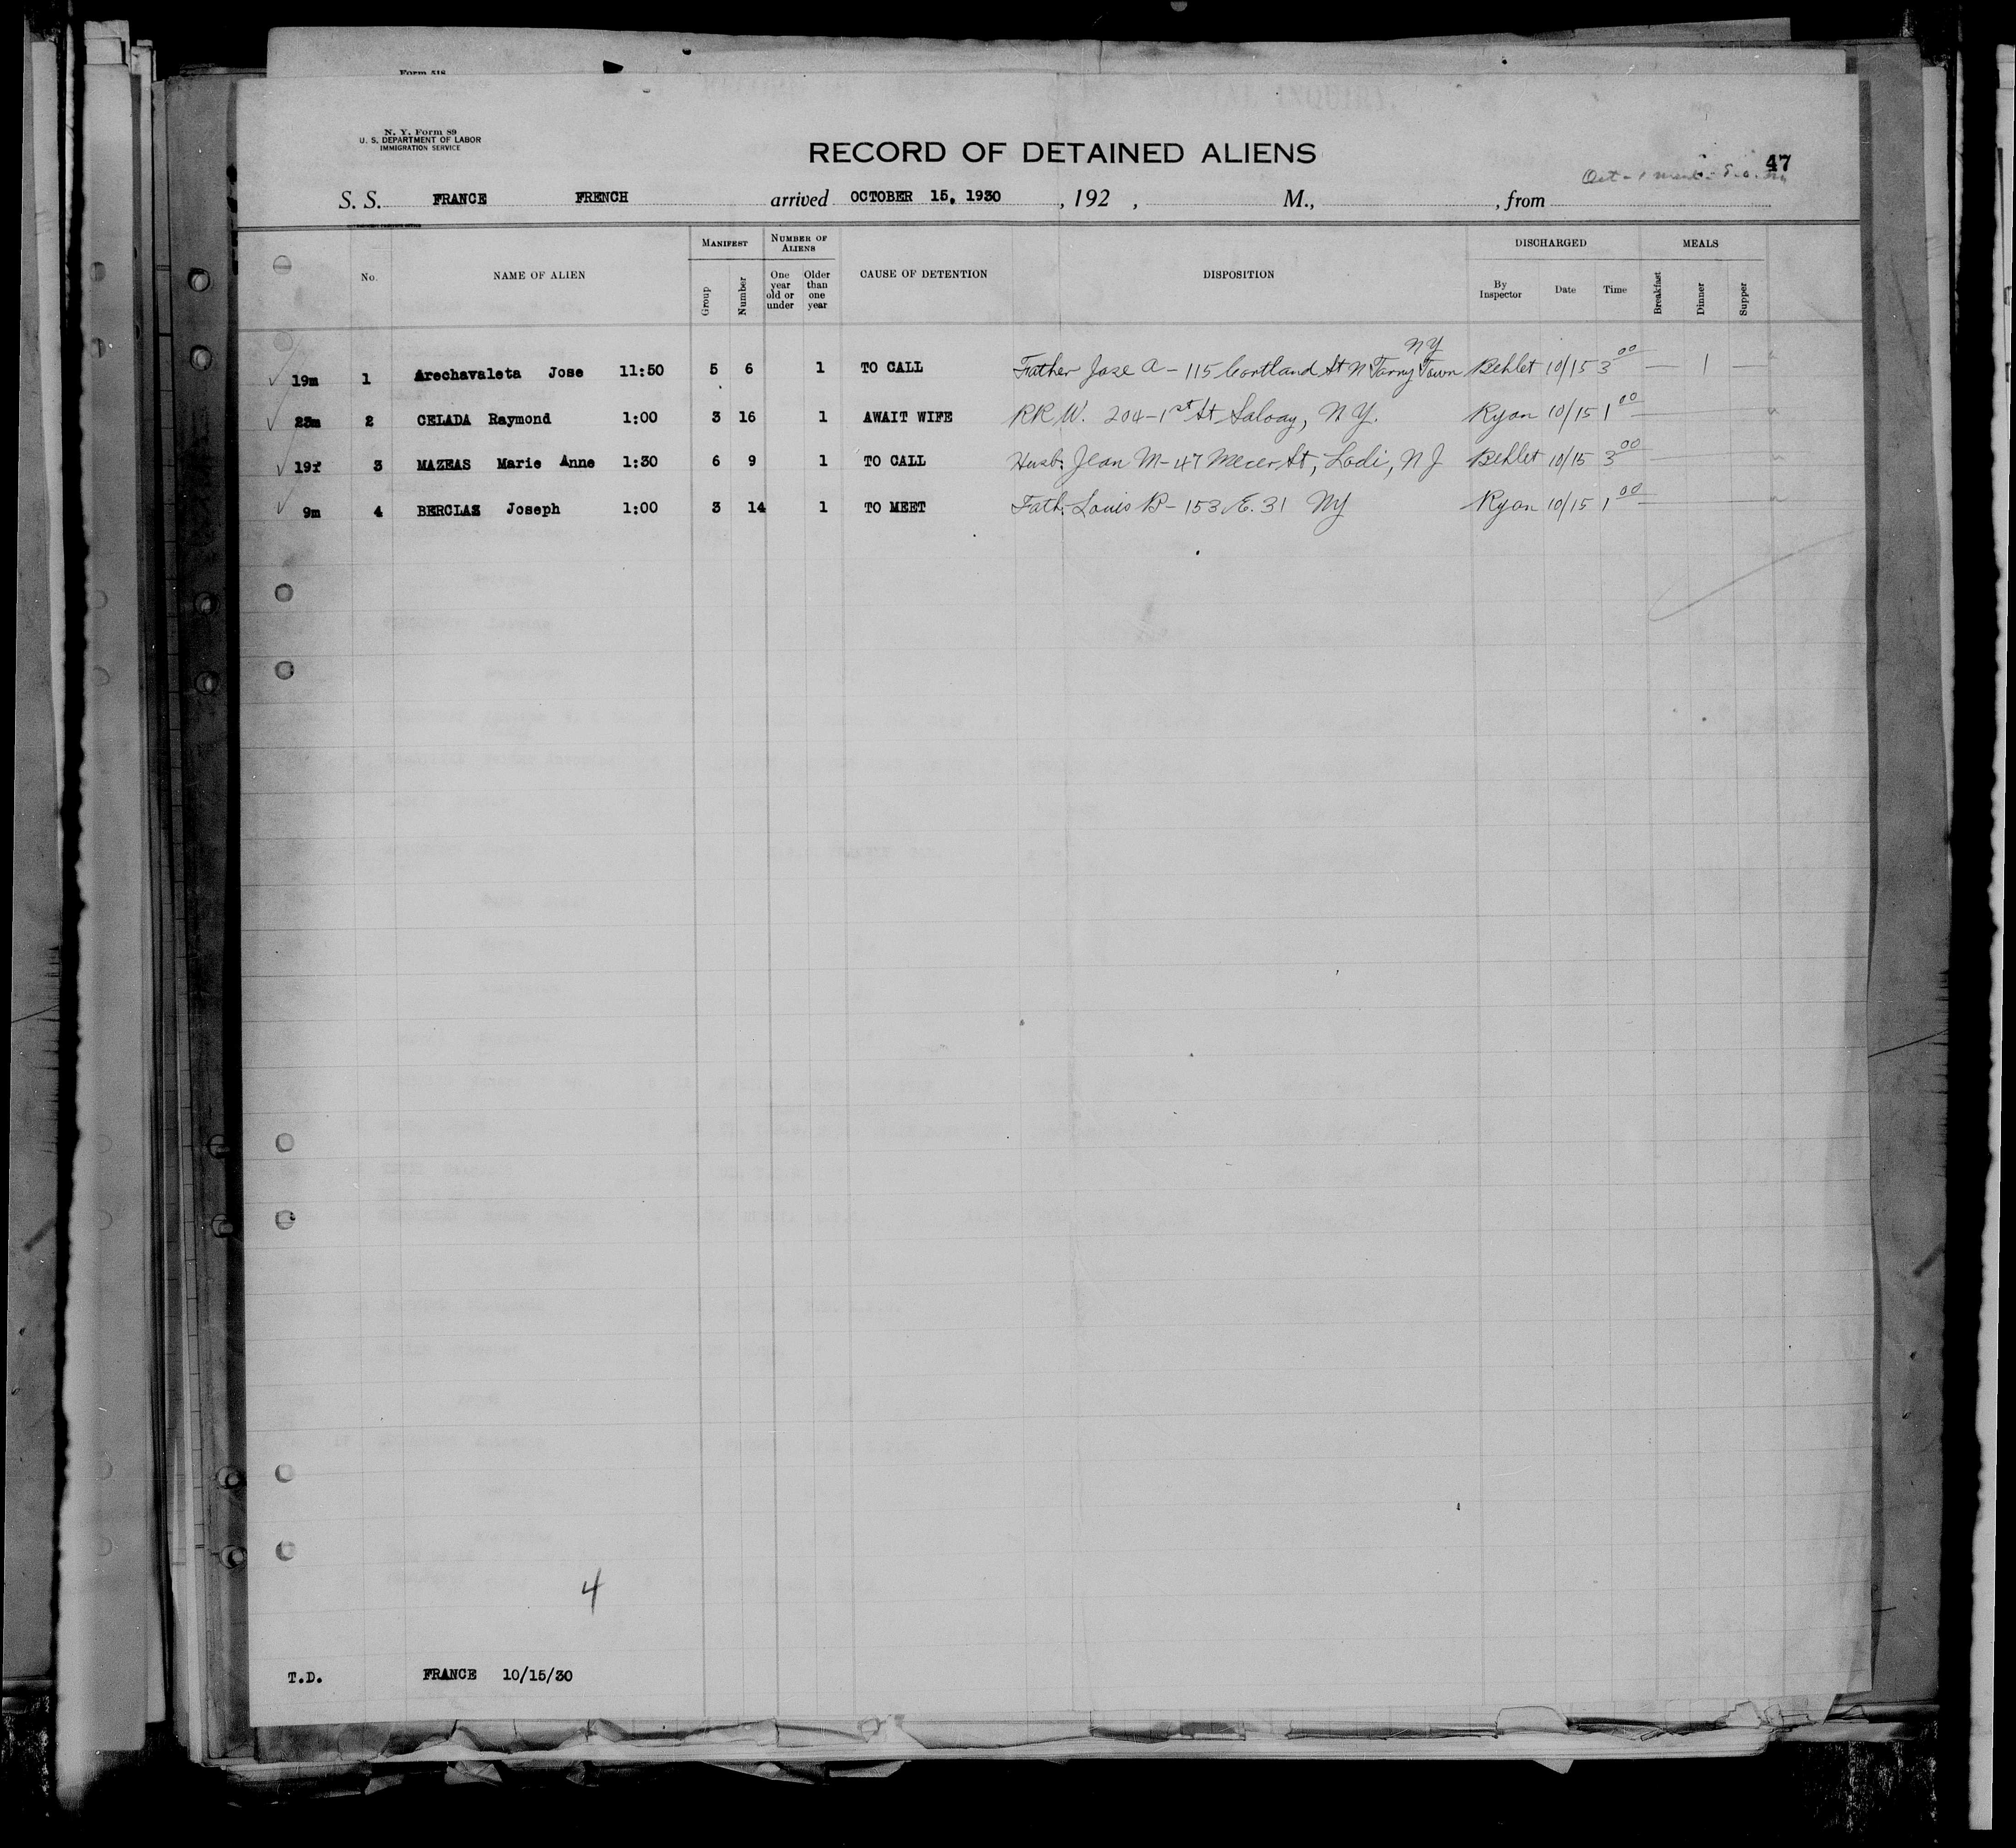 Form 518
N. Y. Form 89
U. S. DEPARTMENT OF LABOR
IMMIGRATION SERVICE
RECORD OF DETAINED ALIENS
47
Oct - 1
S. S. FRANCE FRENCH arrived OCTOBER 15, 1930, 192 , M., , from
No. NAME OF ALIEN MANIFEST Group Number NUMBER OF ALIENS One year old or under Older than one year CAUSE OF DETENTION DISPOSITION DISCHARGED By Inspector Date Time MEALS Breakfast Dinner Supper
NY
19m 1 Arechavaleta Jose 11:50 5 6 1 TO CALL Father Jose A - 115 Cortland St N Tarry Town Behlet 10/15 3 00 — 1 —
23m 2 CELADA Raymond 1:00 3 16 1 AWAIT WIFE RR W. 204-1st St Solvay, N Y. Ryan 10/15 1 00
19f 3 MAZEAS Marie Anne 1:30 6 9 1 TO CALL Husb: Jean M - 47 Mercer St, Lodi, N J Behlet 10/15 3 00
9m 4 BERCLAZ Joseph 1:00 3 14 1 TO MEET Fath: Louis B - 153 E. 31 NY Ryan 10/15 1 00
4
T.D. FRANCE 10/15/30